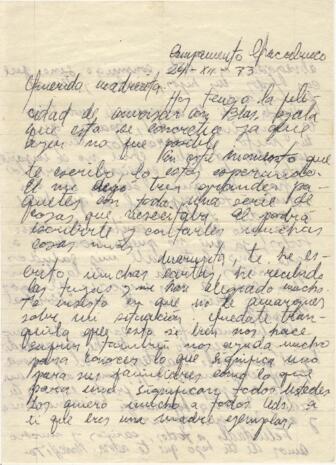 Campamento Chacabuco
24-XII-73
Querida madrecita:
Hoy tengo la feli
cidad de conversar con Blas, ojalá
que esta se concrete ya que
ayer no fue posible
En este momento que
te escribo lo estoy esperando.
El me dejó tres grandes pa
quetes con toda una serie de
cosas que necesitaba. El podrá
escribirte y contarles muchas
cosas más.
mamita, te he es
crito muchas cartas, he recibido
las tuyas y me han alegrado mucho.
Te insisto en que no te amargues
sobre mi situación. Quédate tran
quila pues esto si bien nos hace
sufrir también nos ayuda mucho
para conocer lo que significa uno
para sus familiares como lo que
para uno significan todos ustedes
Los quiero mucho a todos Uds, a
ti que eres una madre ejemplar,